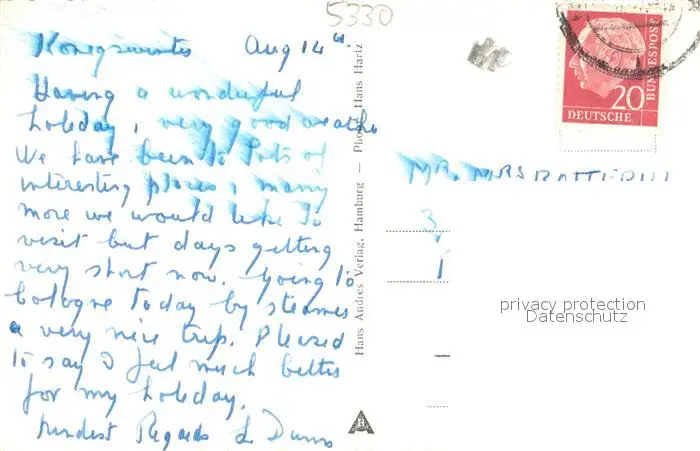 5330
Konigswinter Aug 14th
Having a wonderful
holeday, very good weather
We have been to lots of
interesting places, many
more we would like to
visit but days getting
very short now. Going to
Cologne today by steamer
a very nice trip. Pleased
to say I feel much better
for my holeday.
Kindest Regards L Dunn
Hans Andres Verlag, Hamburg — Photo: Hans Hartz
DEUTSCHE
BUNDESPOST
20
MR. MRS
privacy protection
Datenschutz